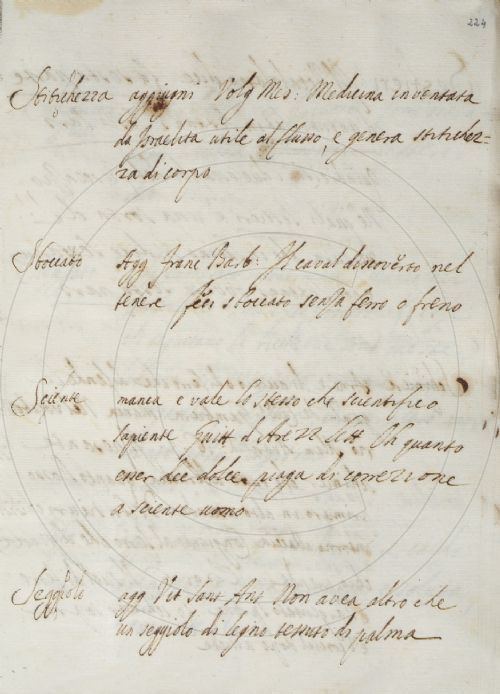 224
Stitichezza aggiugni Volg Mes: Medicina inventata
da Israelita utile al flusso, e genera stitichez=
za di corpo
Sboccato Agg Franc Barb: Il caval di
nel
tenere sboccato senza ferro o freno
Sciente manca e vale lo stesso che scientifico
sapiente Guitt d'Arezz Lett Oh quanto
esser dee dolce piaga di correzione
a sciente uomo
Seggiolo agg Vit Sant Ant Non avea altro che
un seggiolo di legno tessuto di palma